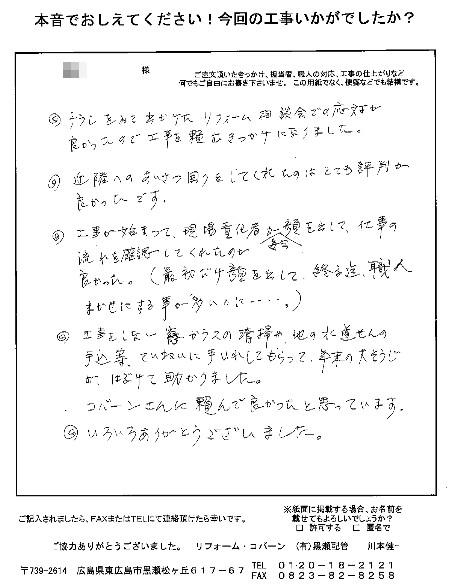 本音でおしえてください！今回の工事いかがでしたか？
様
ご注文頂いたきっかけ、担当者、職人の対応、工事の仕上がりなど
何でもご自由にお書き下さいませ。この用紙でなく、便箋などでも結構です。
リフォーム相談会での応対が
良かったので工事を頼むきっかけになりました。
近隣へのあいさつ回りをしてくれたのはとても評判が
良かったです。
工事が始まって、現場責任者が毎日顔を出して、仕事の
流れを確認してくれたのが
良かった。（最初だけ顔を出して、終る迄、職人
まかせにする事が多いのに・・・・。）
工事をしない窓ガラスの清掃や、他の水道せんの
手入等、ていねいに手いれしてもらって、年末の大そうじ
が、はぶけて助かりました。
コバーンさんに頼んで良かったと思っています。
いろいろありがとうございました。
※紙面に掲載する場合、お名前を
載せてもよろしいでしょうか？
ご記入されましたら、FAXまたはTELにて連絡頂けたら幸いです。
□ 許可する □ 匿名で
ご協力ありがとうございました。 リフォーム・コバーン (有)黒瀬配管 川本健一
〒739-2614 広島県東広島市黒瀬松ヶ丘617-67
TEL 0120-18-2121
FAX 0823-82-8258